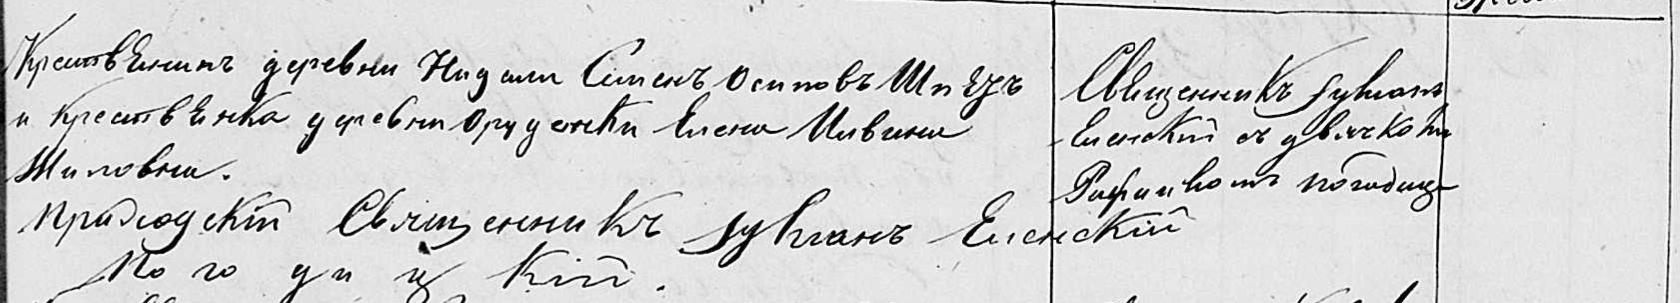 Крестьянинъ деревни Нидали Сименъ Осиповъ Шпегъ
и крестьянка деревни Орудянки Елена Ивина
Шиловна.
Приходскій Священникъ Лукианъ Еленскій
Погодицкій.
Священникъ Лукианъ
Еленскій съ дьячкомъ